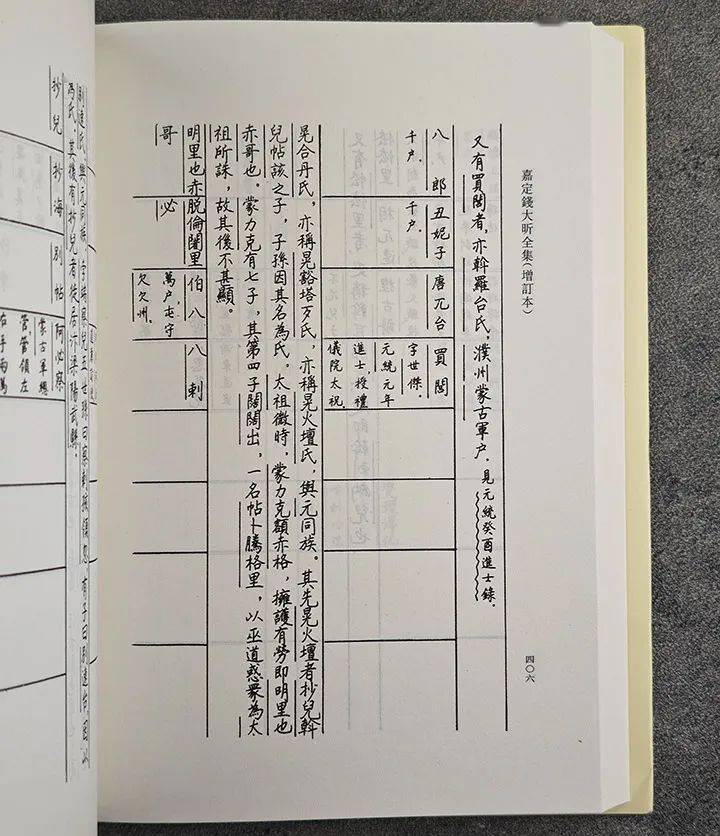 嘉定錢大昕全集(增訂本)
四〇六
又有買閭者,亦斡羅台氏,濮州蒙古軍户。見元統癸酉進士錄。
八郎
千户。
丑妮子
千户。
唐兀台
買閭
字世傑。
元統元年
進士授禮
儀院太祝。
晃合丹氏,亦稱晃豁塔歹氏,亦稱晃火壇氏,與元同族。其先晃火壇者抄兒斡
兒帖該之子,子孫因其名為氏。太祖微時,蒙力克額赤格,擁護有勞即明里也
赤哥也。蒙力克有七子,其第四子闊闊出,一名帖卜騰格里,以巫道惑眾為太
祖所誅,故其後不甚顯。
明里也赤
哥
脱倫闍里
必
伯八
萬户屯守
欠欠州。
八剌
抄兒
抄海
別帖
阿必察
蒙古軍總
管管領左
右手兩萬
其後有抄兒者徙居汴梁陽武縣。